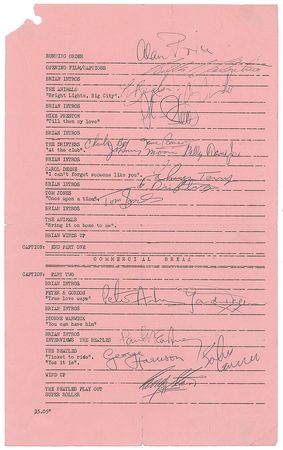 RUNNING ORDER
Alan Price
OPENING FILM/CAPTIONS
BRIAN INTROS
THE ANIMALS
"Bright Lights, Big City".
BRIAN INTROS
MIKE PRESTON
"Till then my love"
BRIAN INTROS
THE DRIFTERS
"At the club"
Johnny Moore
BRIAN INTROS
CAROL DEENE
"I can't forget someone like you".
BRIAN INTROS
TOM JONES
"Once upon a time".
Tom Jones
BRIAN INTROS
THE ANIMALS
"Bring it on home to me".
BRIAN WINDS UP
CAPTION: END PART ONE
COMMERCIAL BREAK
CAPTION: PART TWO
BRIAN INTROS
PETER & GORDON
"True love ways"
Peter Asher
BRIAN INTROS
DIONNE WARWICK
"You can have him"
BRIAN INTROS
INTERVIEWS THE BEATLES
Paul McCartney
THE BEATLES
"Ticket to ride".
"Yes it is".
George Harrison
WINDS UP
THE BEATLES PLAY OUT
SUPER ROLLER
35.05"